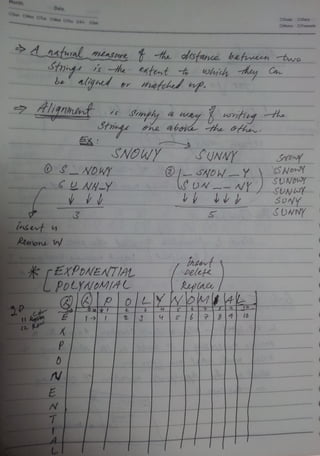 Date
⇒ A natural measure of the distance between two
Strings is the extent to which they can
be aligned or matched up.
⇒ Alignment is simply a way of writing the
Strings one above the other.
Ex:
SNOWY SUNNY
① S _ NOWY ② _ SNOW _ Y
S U NN _ Y SUN _ _ NY
↓ ↓ ↓ ↓ ↓ ↓ ↓ ↓
3 5
SNOWY
SNOWY
SUNOWY
SUNWY
SUNY
SUNNY
insert u
Remove W
* EXPONENTIAL
POLYNOMIAL
insert
Delete
Replace
2D
P O L Y N O M I A L
E 1 → 1 2 3 4 5 6 7 8 9 10
X
P
O
N
E
N
T
I
A
L